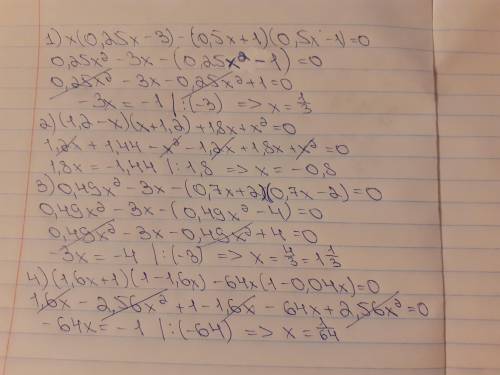 1) x(0,25x-3)-(0,5x+1)(0,5x-1)=0
0,25x²-3x-(0,25x²-1)=0
0,25x²-3x-0,25x²+1=0
-3x=-1 |:(-3) => x=1/3
2)(1,2-x)(x+1,2)+1,8x+x²=0
1,2x+1,44-x²-1,2x+1,8x+x²=0
1,8x=-1,44 |:1,8 => x=-0,8
3) 0,49x²-3x-(0,7x+2)(0,7x-2)=0
0,49x²-3x-(0,49x²-4)=0
0,49x²-3x-0,49x²+4=0
-3x=-4 |:(-3) => x=4/3=1 1/3
4)(1,6x+1)(1-1,6x)-64x(1-0,04x)=0
1,6x-2,56x²+1-1,6x-64x+2,56x²=0
-64x=-1 |:(-64) => x=1/64